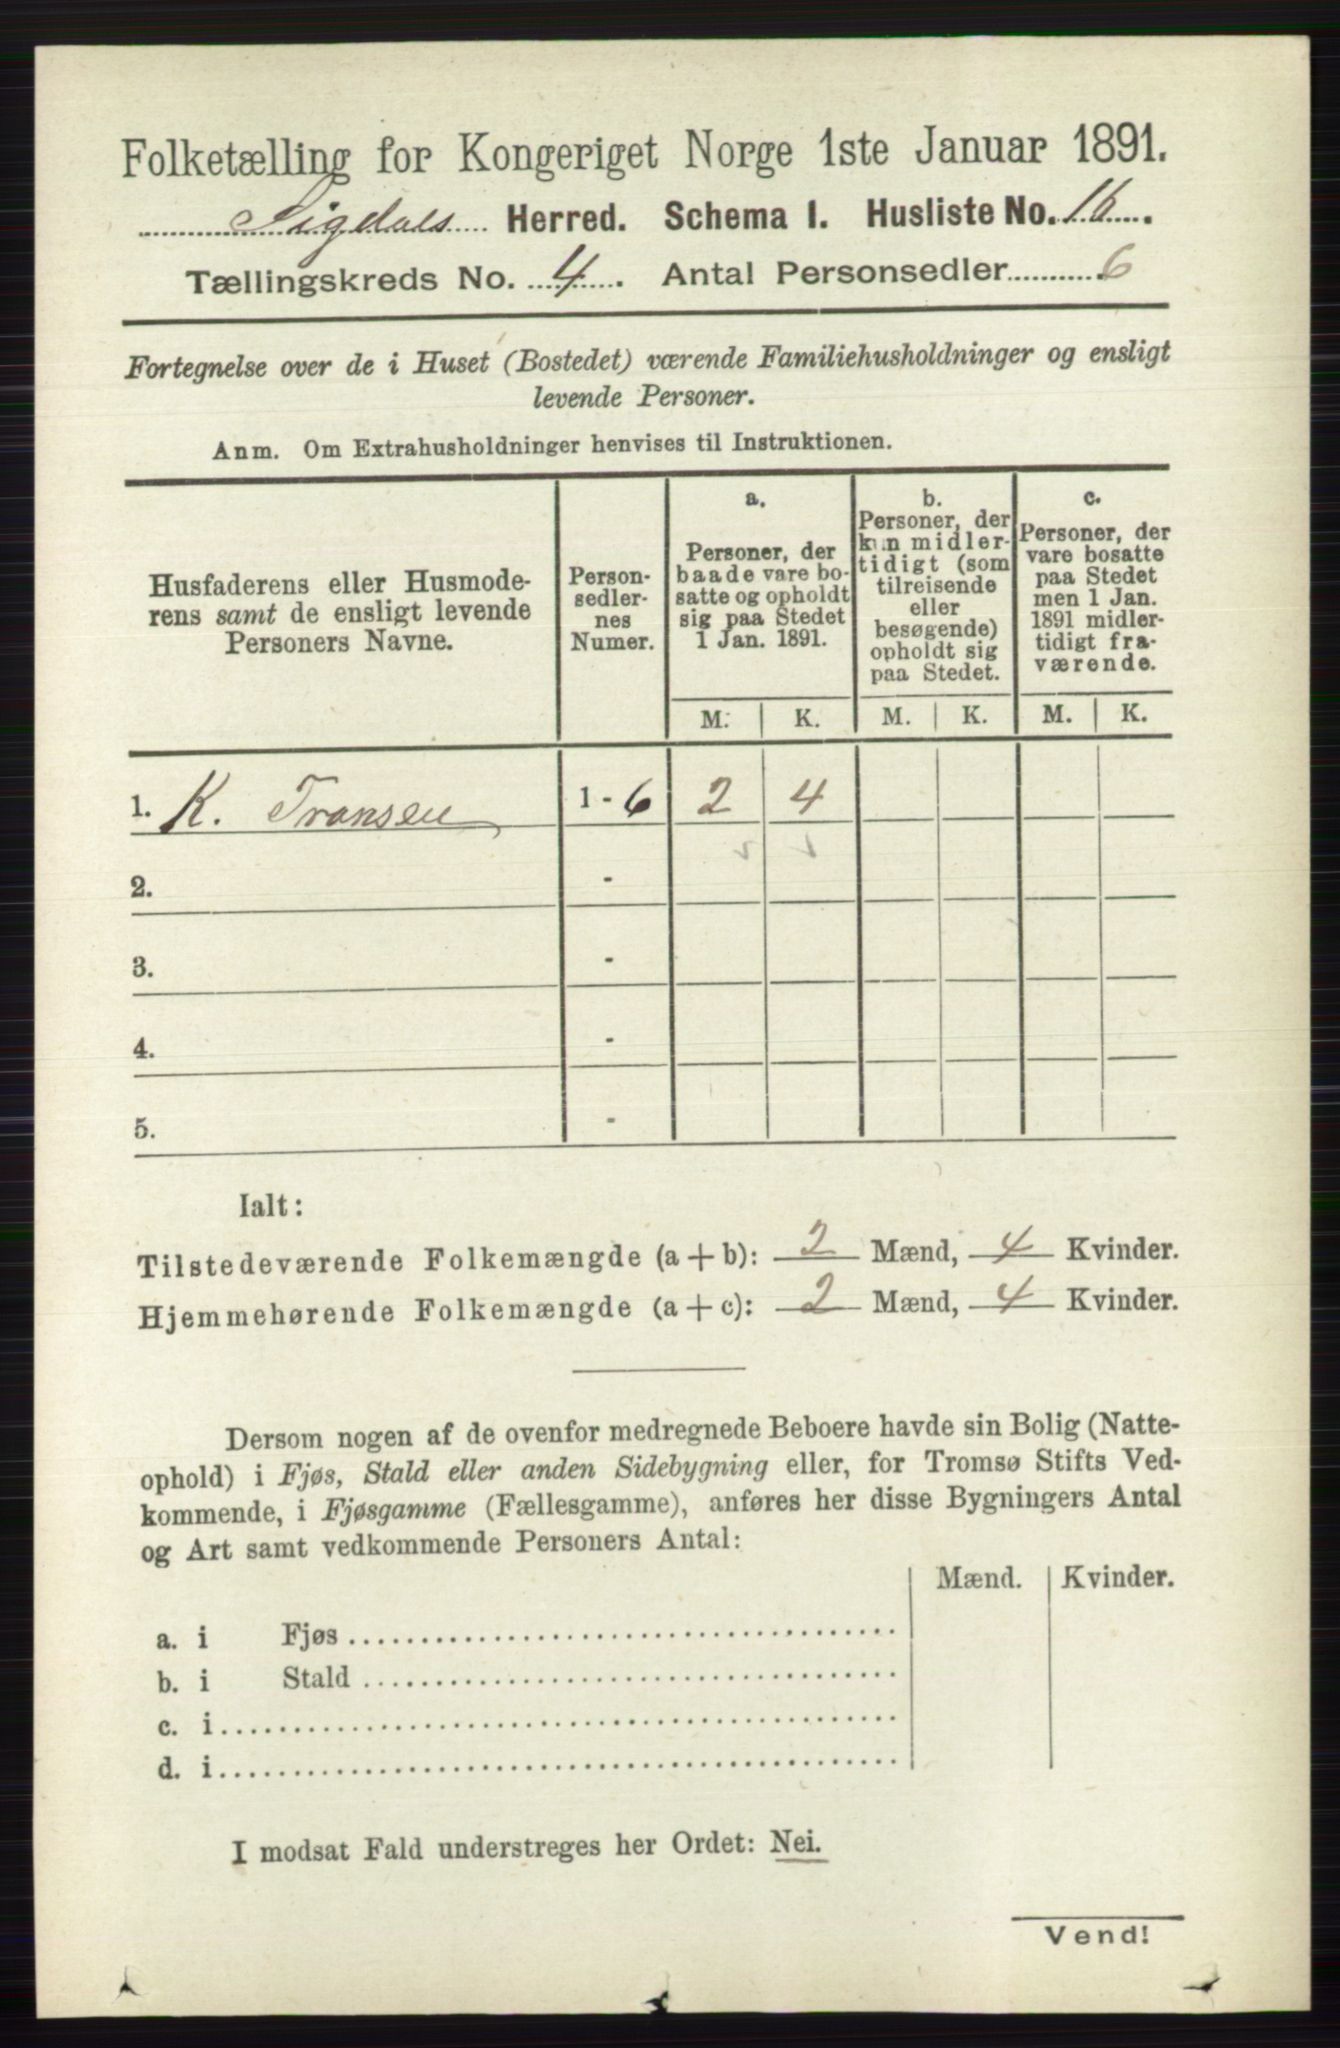 Folketælling for Kongeriget Norge 1ste Januar 1891.
Sigdals Herred. Schema I. Husliste No. 16.
Tællingskreds No. 4. Antal Personsedler 6
Fortegnelse over de i Huset (Bostedet) værende Familiehusholdninger og ensligt
levende Personer.
Anm. Om Extrahusholdninger henvises til Instruktionen.
Husfaderens eller Husmode-
rens samt de ensligt levende
Personers Navne.
Person-
sedler-
nes
Numer.
a.
Personer, der
baade vare bo-
satte og opholdt
sig paa Stedet
1 Jan. 1891.
b.
Personer, der
kun midler-
tidigt (som
tilreisende
eller
besøgende)
opholdt sig
paa Stedet.
c.
Personer, der
vare bosatte
paa Stedet
men 1 Jan.
1891 midler-
tidigt fra-
værende.
M. K. M. K. M. K.
1. K. Transen 1 - 6 2 4
2. -
3. -
4. -
5. -
Ialt:
Tilstedeværende Folkemængde (a + b): 2 Mænd, 4 Kvinder.
Hjemmehørende Folkemængde (a + c): 2 Mænd, 4 Kvinder.
Dersom nogen af de ovenfor medregnede Beboere havde sin Bolig (Natte-
ophold) i Fjøs, Stald eller anden Sidebygning eller, for Tromsø Stifts Ved-
kommende, i Fjøsgamme (Fællesgamme), anføres her disse Bygningers Antal
og Art samt vedkommende Personers Antal:
Mænd. Kvinder.
a. i Fjøs
b. i Stald
c. i
d. i
I modsat Fald understreges her Ordet: Nei.
Vend!